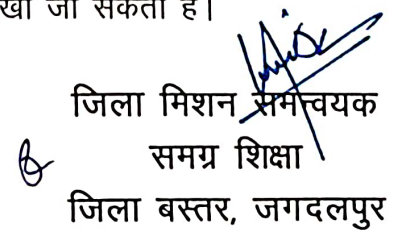 जा सकता है।
जिला मिशन समन्वयक
समग्र शिक्षा
जिला बस्तर, जगदलपुर